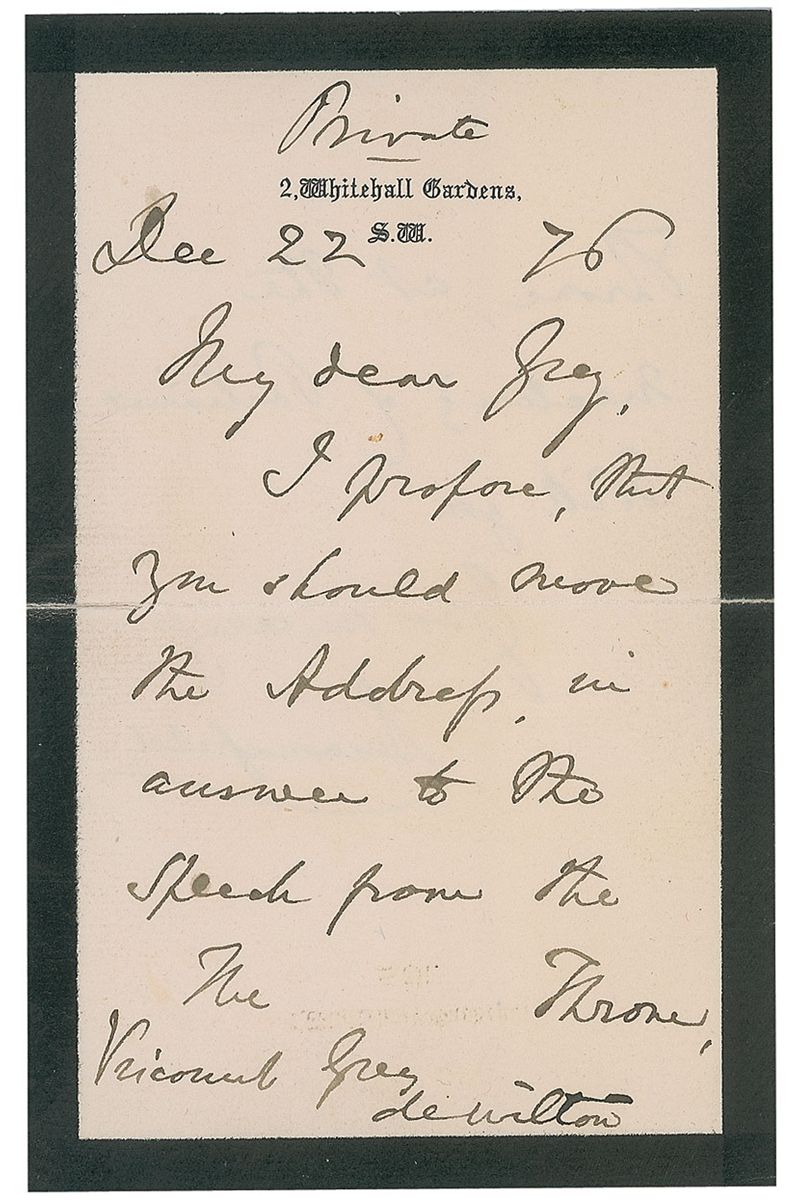 Private
2, Whitehall Gardens,
S.W.
Dec 22 76
My dear Grey,
I propose, that
you should move
the Address, in
answer to the
Speech from the
Throne,
The
Viscount Grey
de Wilton